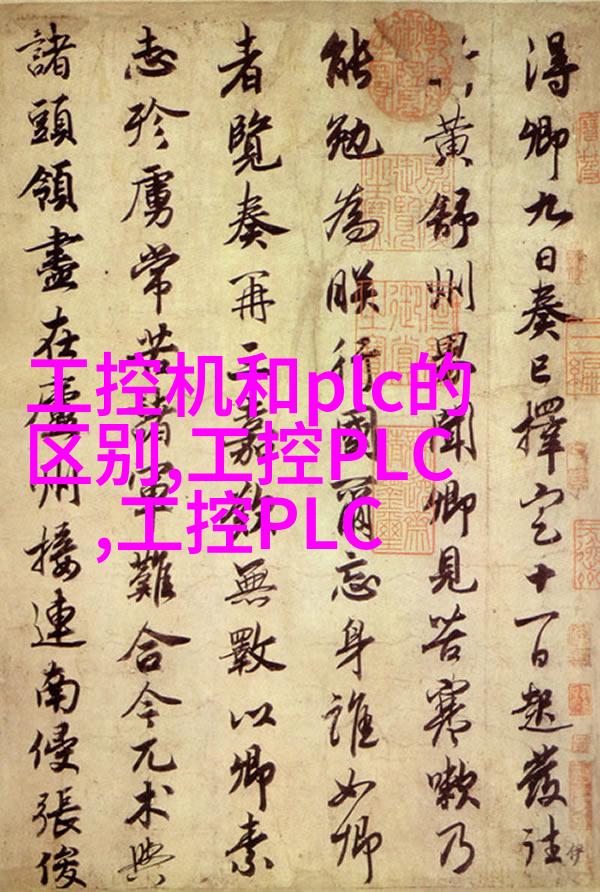 得卿九日奏已擇定十一日起發往
黃舒州界聞卿見苦寒嗽乃
能勉為朕行國爾忘身誰如卿
者覽奏再三嘉歎無斁以卿素
志殄虜常苦諸軍難合今兀术與
諸頭領盡在廬州接連南侵張俊
工控机和plc的
区别,工控PLC
,工控PLC